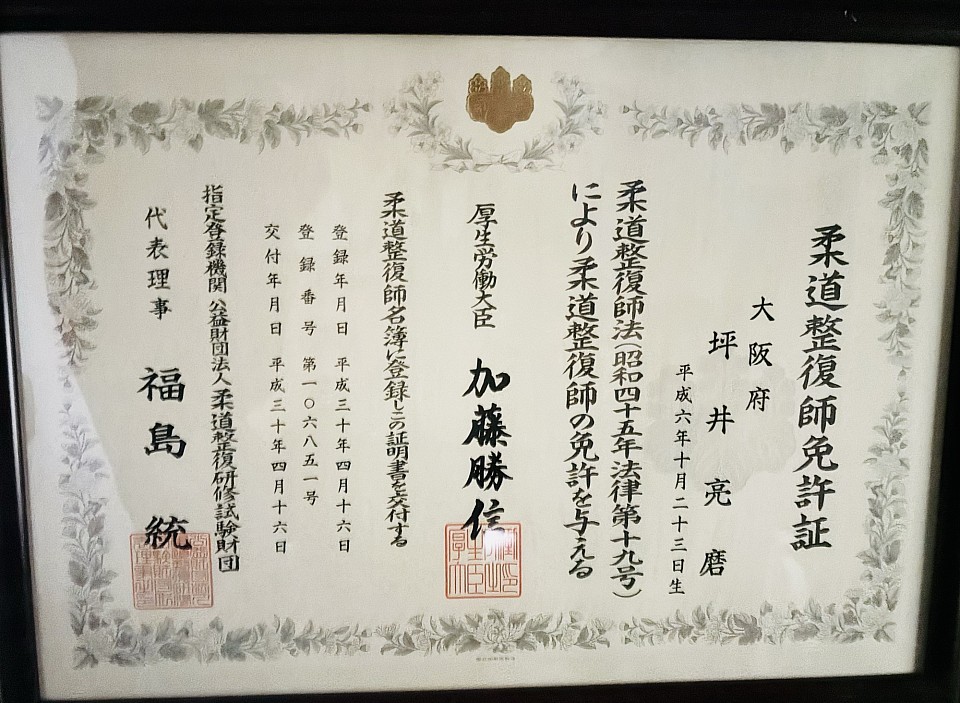 柔道整復師免許証
大阪府
坪井亮磨
平成六年十月二十三日生
柔道整復師法(昭和四十五年法律第十九号)
により柔道整復師の免許を与える
厚生労働大臣 加藤勝信
柔道整復師名簿に登録しこの証明書を交付する
登録年月日 平成三十年四月十六日
登録番号 第一〇六八五一号
交付年月日 平成三十年四月十六日
指定登録機関 公益財団法人 柔道整復研修試験財団
代表理事 福島 統